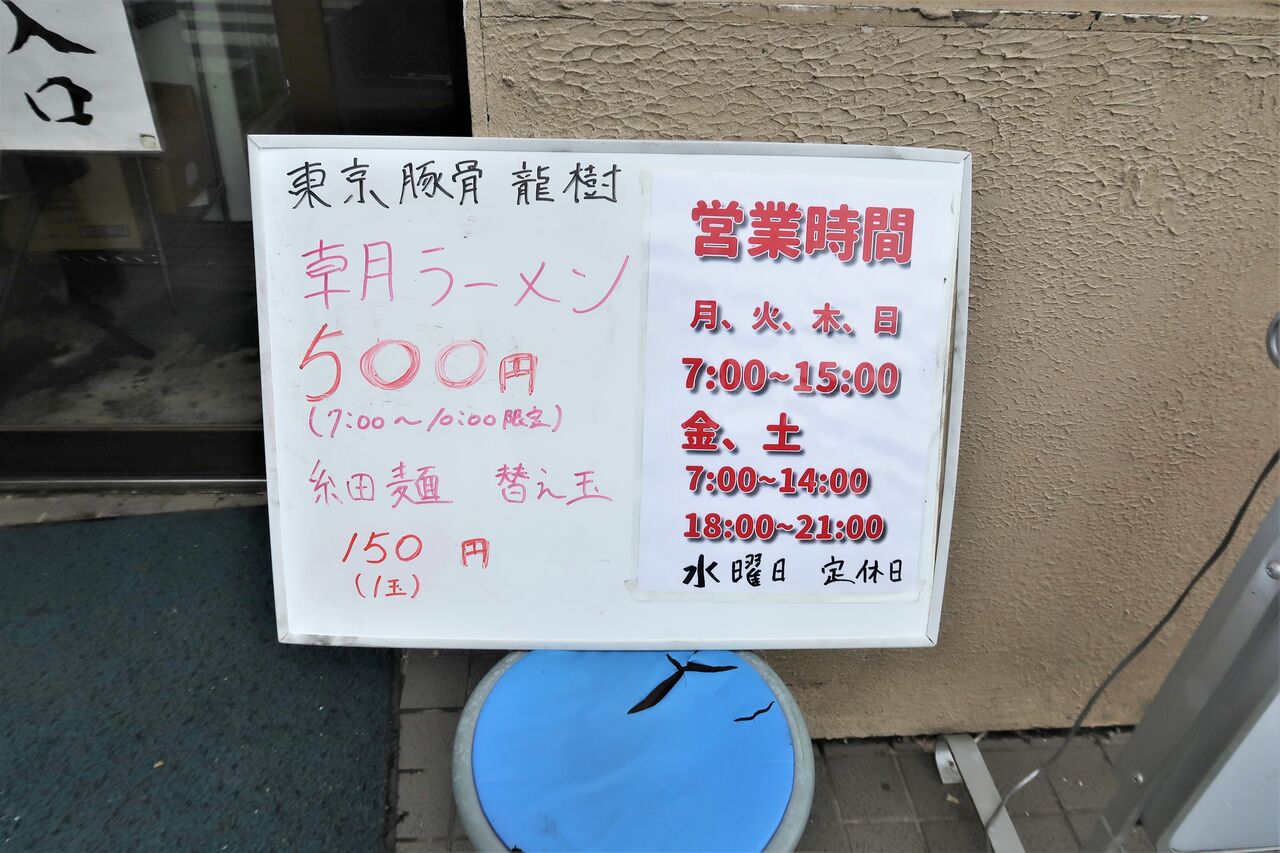 入
口
東京豚骨 龍樹
朝ラーメン
500円
(7:00～10:00限定)
細麺 替え玉
150円
(1玉)
営業時間
月、火、木、日
7:00~15:00
金、土
7:00~14:00
18:00~21:00
水曜日 定休日